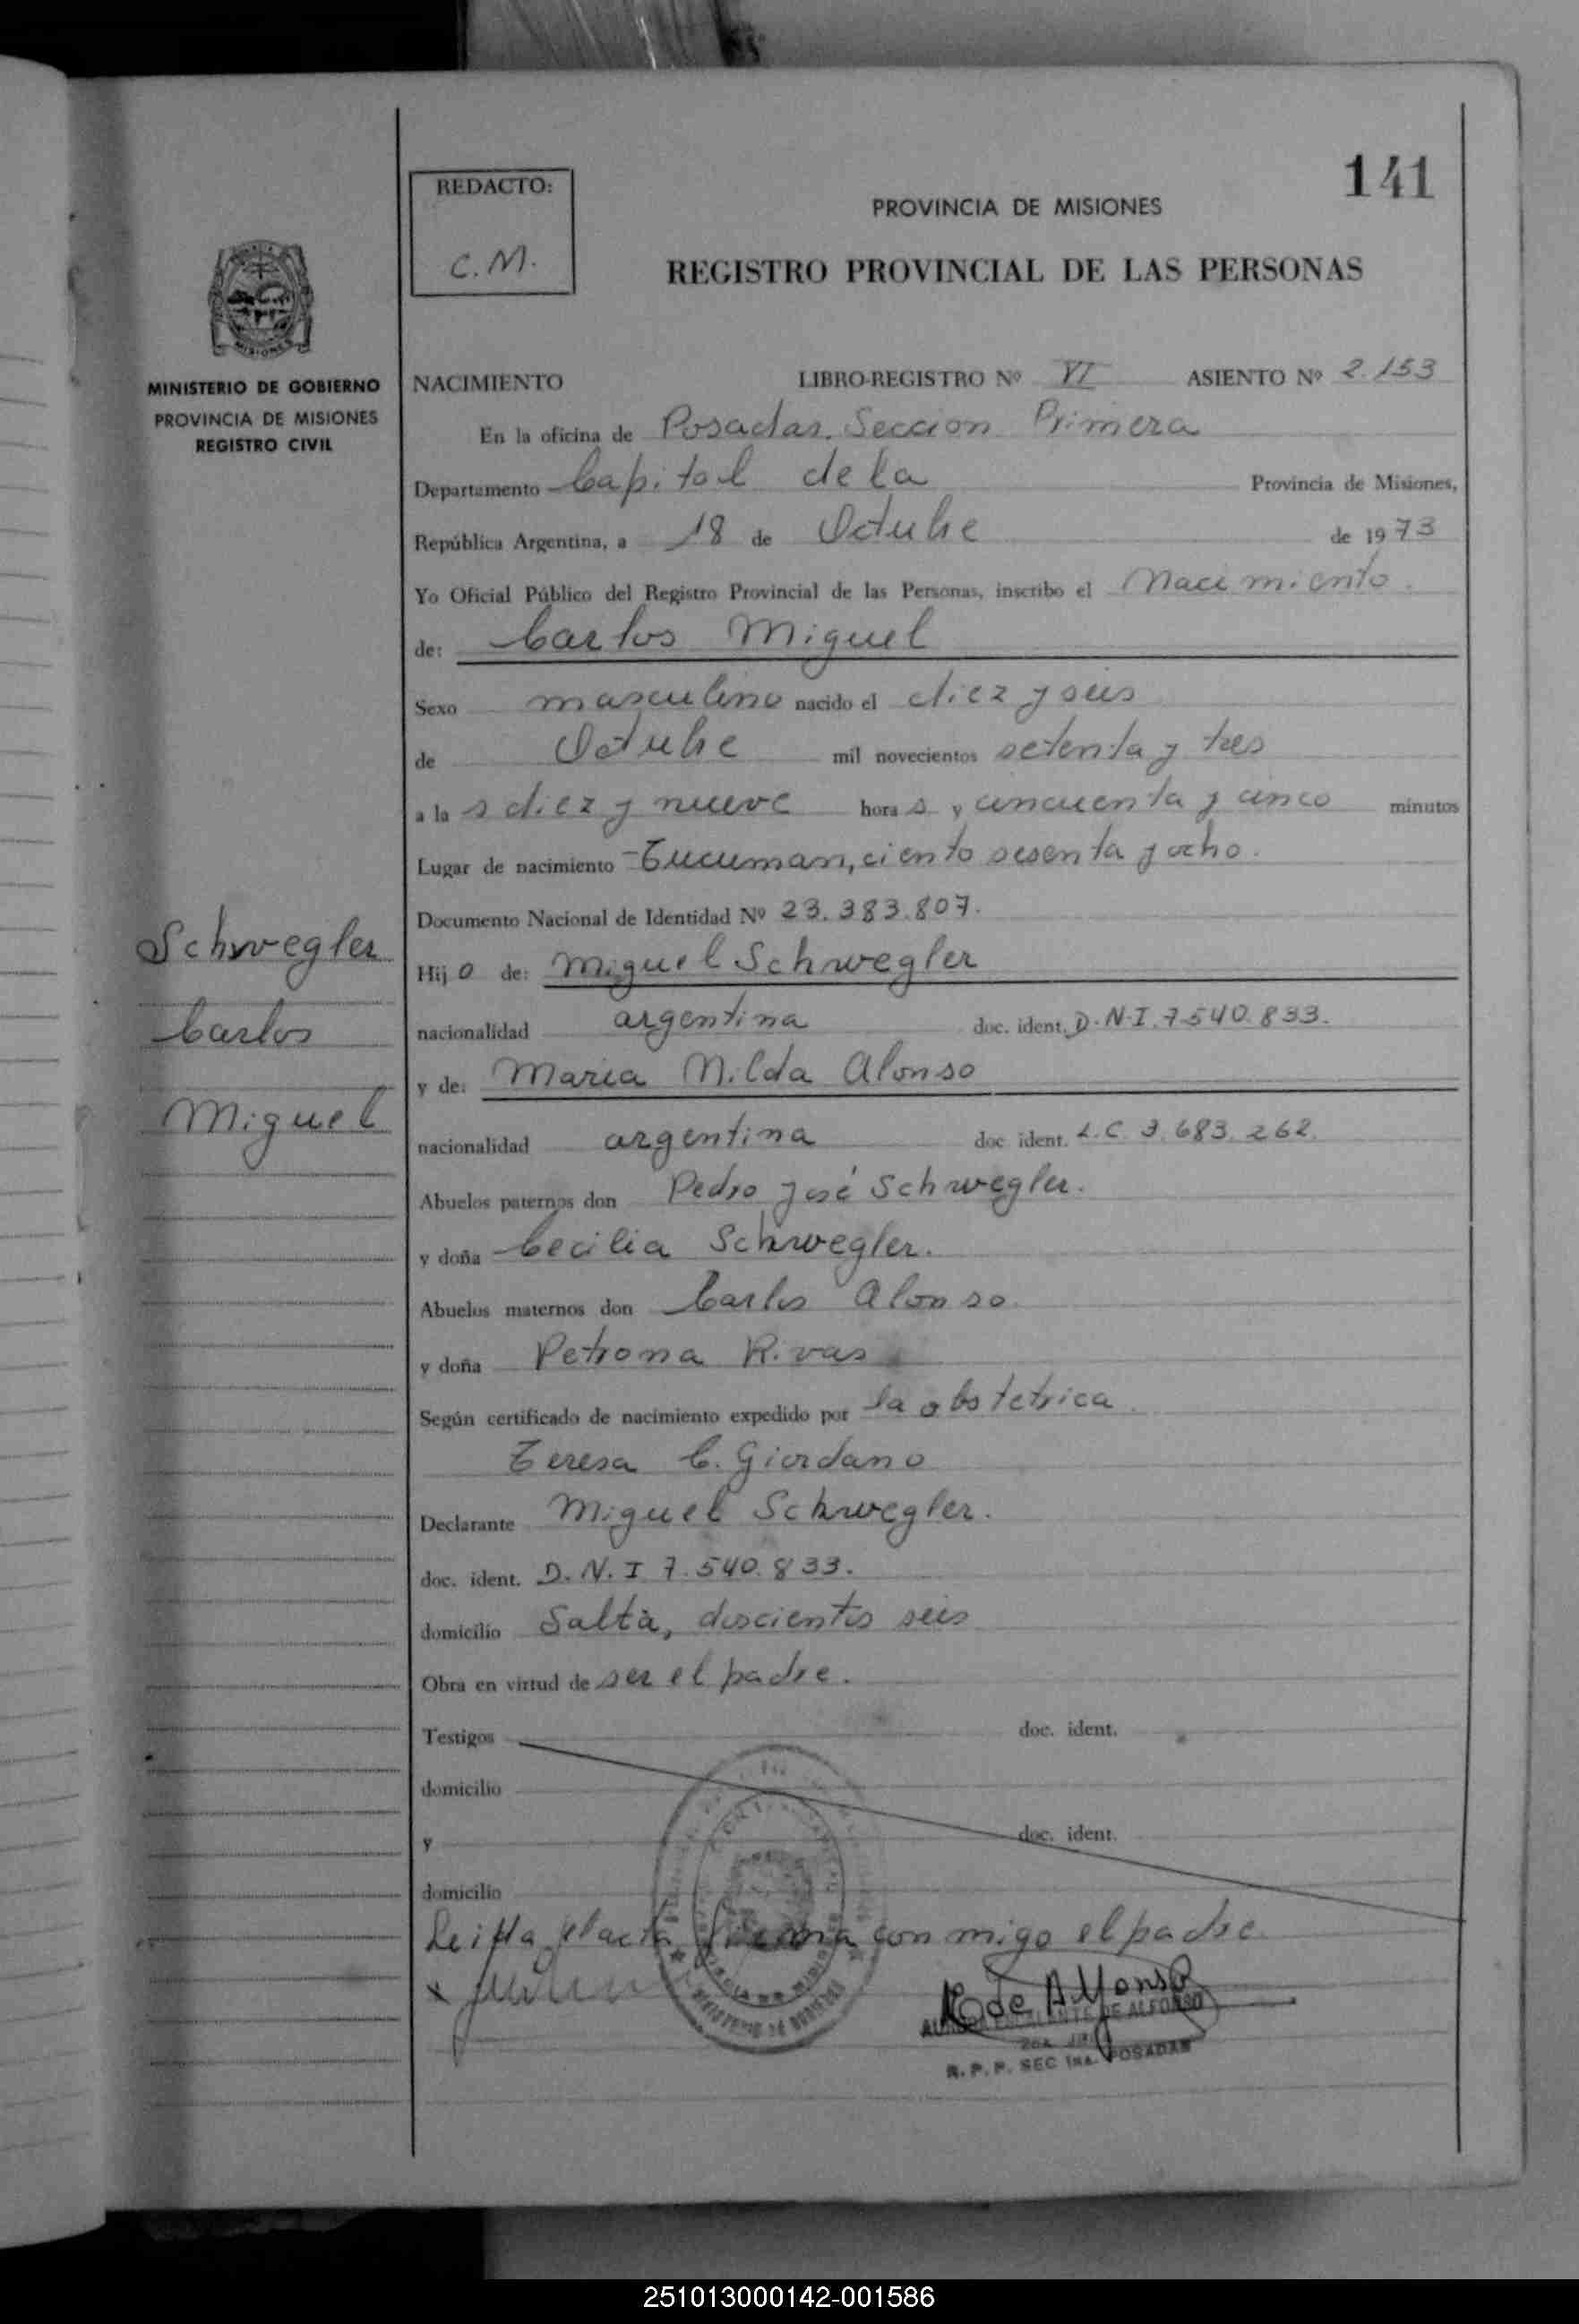 141
REDACTO:
C. M.
PROVINCIA DE MISIONES
REGISTRO PROVINCIAL DE LAS PERSONAS
MISIONES
MINISTERIO DE GOBIERNO
PROVINCIA DE MISIONES
REGISTRO CIVIL
NACIMIENTO LIBRO-REGISTRO Nº VI ASIENTO Nº 2.153
En la oficina de Posadas, Seccion Primera
Departamento Capital de la Provincia de Misiones,
República Argentina, a 18 de Octubre de 1973
Yo Oficial Público del Registro Provincial de las Personas, inscribo el Nacimiento.
de: Carlos Miguel
Sexo masculino nacido el diez y seis
de Octubre mil novecientos setenta y tres
a las diez y nueve horas y cincuenta y cinco minutos
Lugar de nacimiento Tucuman, ciento sesenta y ocho.
Documento Nacional de Identidad Nº 23.383.807.
Schwegler
Carlos
Miguel
Hijo de: Miguel Schwegler
nacionalidad argentina doc. ident. D.N.I. 7.540.833.
y de: Maria Nilda Alonso
nacionalidad argentina doc. ident. L.C. 3.683.262.
Abuelos paternos don Pedro José Schwegler.
y doña Cecilia Schwegler.
Abuelos maternos don Carlos Alonso.
y doña Petrona Rivas
Según certificado de nacimiento expedido por la obstetrica.
Teresa C. Giordano
Declarante Miguel Schwegler.
doc. ident. D.N.I 7.540.833.
domicilio Salta, doscientos seis
Obra en virtud de ser el padre.
Testigos doc. ident.
domicilio
y doc. ident.
domicilio
Leida el acta firma con migo el padre.
de Alfonso
DE ALFONSO
R.P.P. SEC 1RA. POSADAS
251013000142-001586